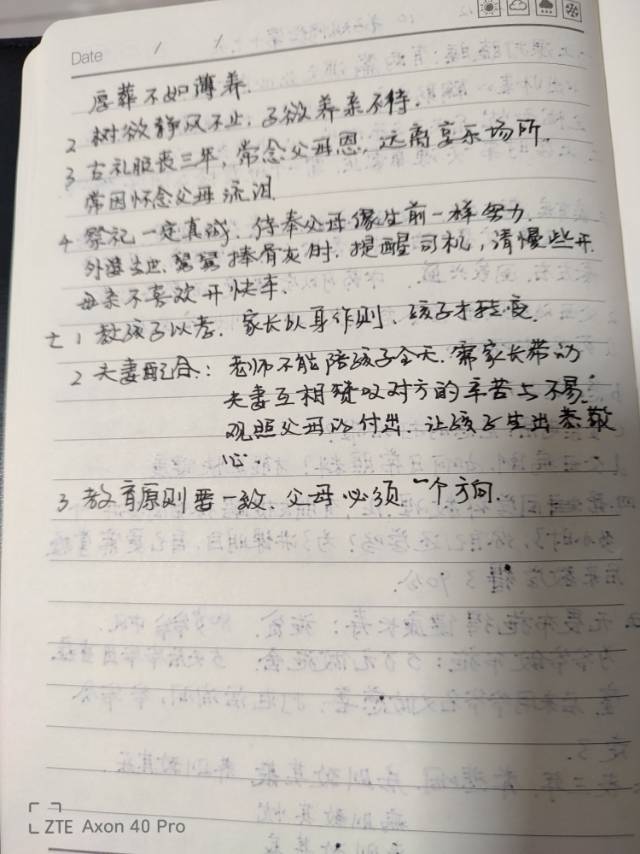 Date / /
厚葬不如薄养.
2 树欲静风不止,子欲养亲不待.
3 古礼服丧三年,常念父母恩,远离享乐场所.
常因怀念父母流泪
4 祭祀一定真诚.侍奉父母像生前一样努力.
外婆去世.舅舅捧骨灰时.提醒司机,请慢些开
母亲不喜欢开快车.
七 1 教孩子以孝.家长以身作则、孩子才
2 夫妻配合:老师不能陪孩子全天.需家长带动
夫妻互相赞叹对方的辛苦与不易.
观照父母的付出.让孩子生出恭敬
心.
3 教育原则要一致.父母必须一个方向.
ZTE Axon 40 Pro